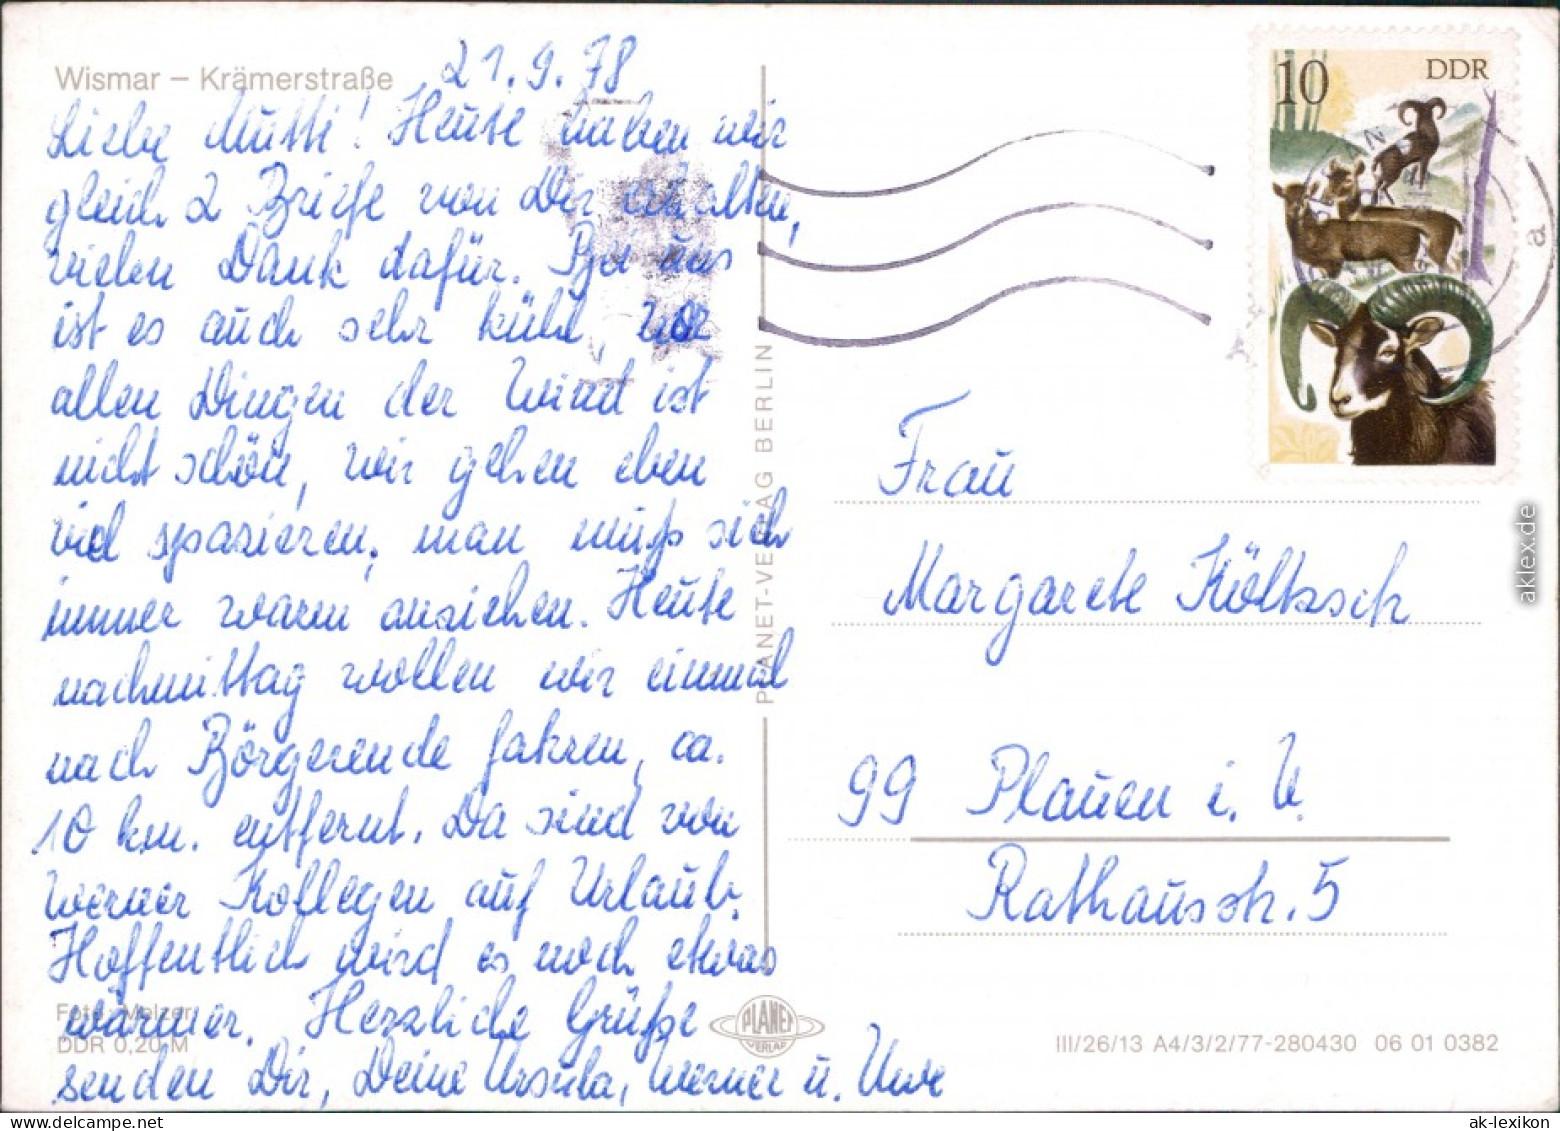 Wismar – Krämerstraße
21.9.78
Liebe Mutti! Heute haben wir
gleich 2 Briefe von Dir erhalten,
vielen Dank dafür. Bei uns
ist es auch sehr kühl, vor
allen Dingen der Wind ist
nicht schön, wir gehen eben
viel spazieren, man muß sich
immer warm anziehen. Heute
nachmittag wollen wir einmal
nach Börgerende fahren, ca.
10 km. entfernt. Da sind von
Werner Kollegen auf Urlaub.
Hoffentlich wird es noch etwas
wärmer. Herzliche Grüße
senden Dir, Deine Ursula, Werner u. Uwe
Foto: Melzer
DDR 0,20 M
PLANET-VERLAG BERLIN
PLANET
VERLAG
10 DDR
a
Frau
Margarete Költzsch
99 Plauen i. V.
Rathausstr. 5
III/26/13 A4/3/2/77-280430 06 01 0382
aklex.de
ak-lexikon